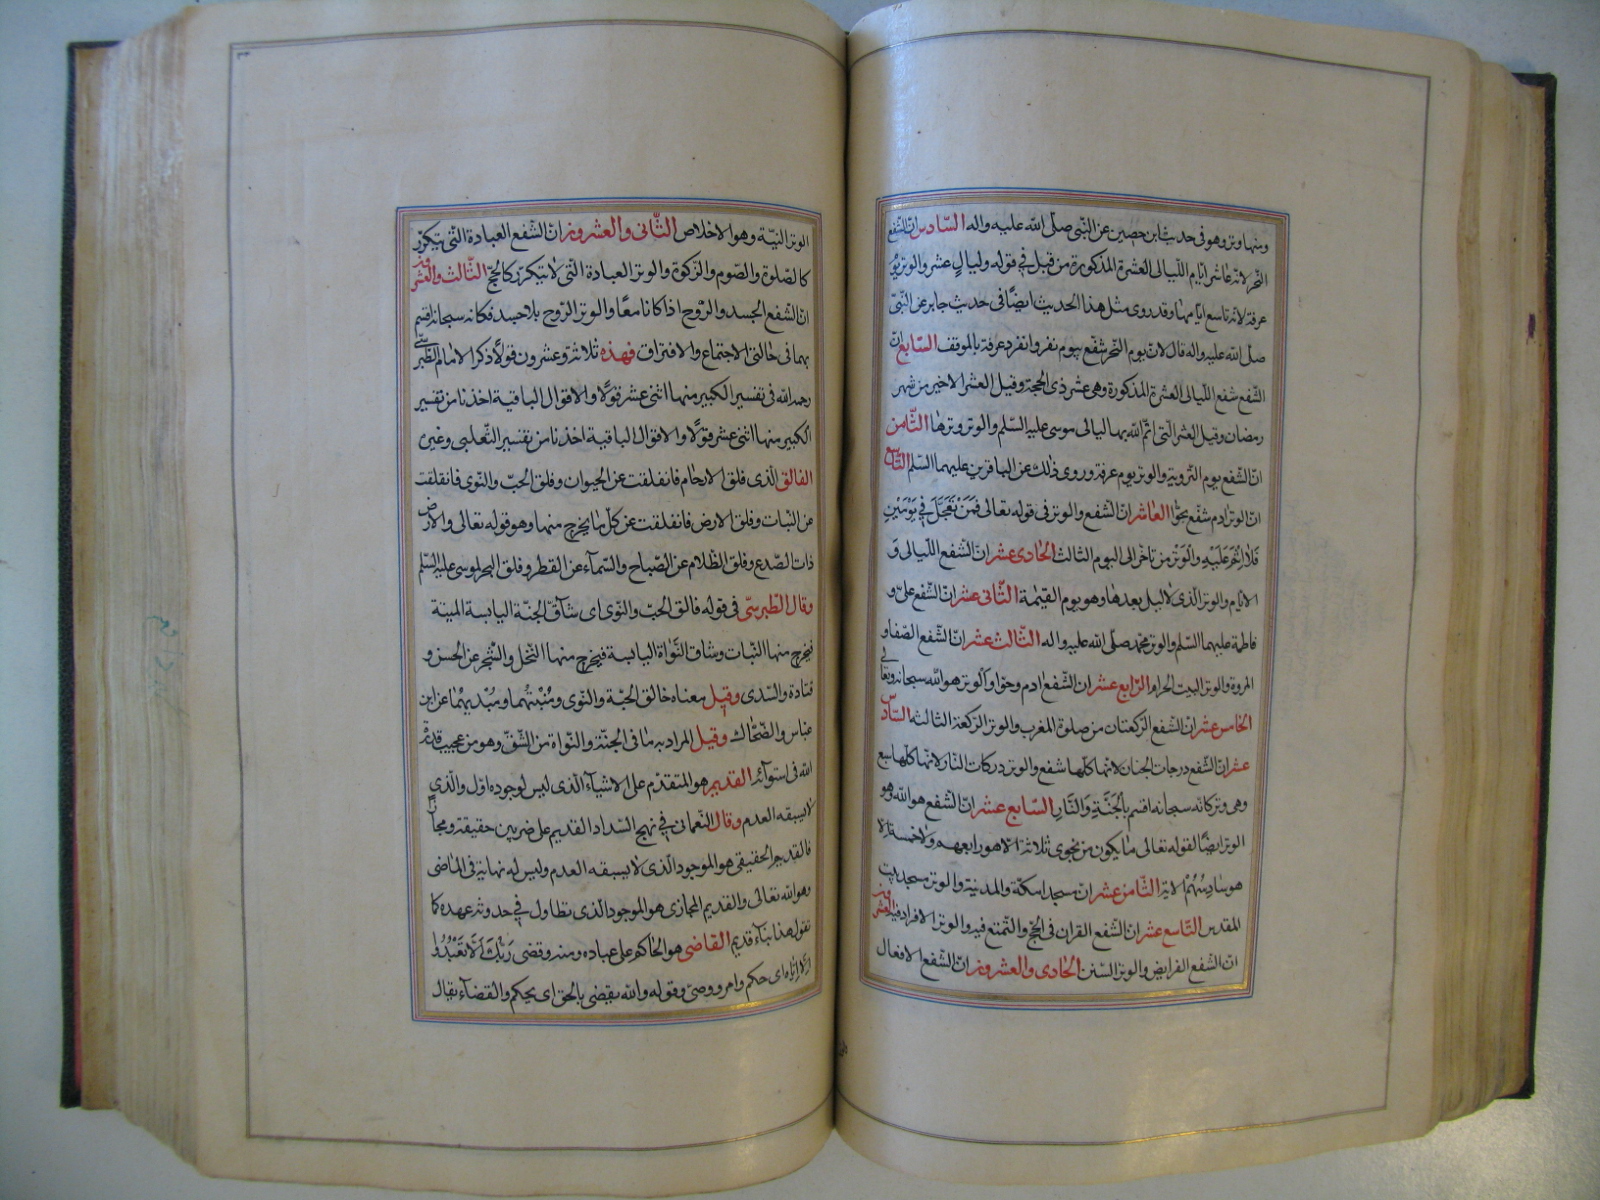 ومنها وتر وهو فى حديث ابن حصين عن النبى صلى الله عليه واله السادس ان الشفع
النحر لانه عاشر ايام الليالى العشرة المذكورة من قبل فى قوله وليال عشر والوتر يوم
عرفة لانه تاسع ايامها وقد روى مثل هذا الحديث ايضا فى حديث جابر عن النبى
صلى الله عليه واله قال لان يوم النحر شفع بيوم نفر وانفرد عرفة بالموقف السابع ان
الشفع شفع الليالى العشرة المذكورة وهى عشر ذى الحجة وقيل العشر الاخير من شهر
رمضان وقيل العشر التى اتم الله بها ليالى موسى عليه السلم والوتر وترها الثامن
ان الشفع يوم التروية والوتر يوم عرفة وروى ذلك عن الباقرين عليهما السلم التاسع
ان الوتر ادم شفع بحوا العاشر ان الشفع والوتر فى قوله تعالى فمن تعجل فى يومين
فلا اثم عليه والوتر من تاخر الى اليوم الثالث الحادى عشر ان الشفع الليالى و
الايام والوتر الذى لا ليل بعدها وهو يوم القيمة الثانى عشر ان الشفع على و
فاطمة عليهما السلم والوتر محمد صلى الله عليه واله الثالث عشر ان الشفع الصفا و
المروة والوتر البيت الحرام الرابع عشر ان الشفع ادم وحوا والوتر هو الله سبحانه وتعالى
الخامس عشر ان الشفع الركعتان من صلوة المغرب والوتر الركعة الثالثة السادس
عشر ان الشفع درجات الجنان لانها كلها شفع والوتر دركات النار لانها كلها سبع
وهى وتر كانه سبحانه اقسم بالجنة والنار السابع عشر ان الشفع هو الله وهو
الوتر ايضا لقوله تعالى ما يكون من نجوى ثلاثة الا هو رابعهم ولا خمسة الا
هو سادسهم الاية الثامن عشر ان مسجد امكة والمدينة والوتر مسجد بيت
المقدس التاسع عشر ان الشفع القران فى الحج والتمتع فيه والوتر الافراد فيه العشرون
ان الشفع الفرايض والوتر السنن الحادى والعشرون ان الشفع الافعال
الوتر النية وهو الاخلاص الثانى والعشرون ان الشفع العبادة التى تتكرر
كالصلوة والصوم والزكوة والوتر العبادة التى لا يتكرر كالحج الثالث والعشرون
ان الشفع الجسد والروح اذا كانا معا والوتر الروح بلا جسد فكانه سبحانه اقسم
بهما فى حالتى الاجتماع والافتراق فهذه ثلاثة وعشرون قولا ذكر الامام الطبرسى
رحمه الله فى تفسير الكبير منها اثنى عشر قولا والاقوال الباقية اخذنا من تفسير
الكبير منها اثنى عشر قولا والاقوال الباقية اخذنا من تفسير الثعلبى وغيره
الفالق الذى فلق الارحام فانفلقت عن الحيوان وفلق الحب والنوى فانفلقت
عن النبات وفلق الارض فانفلقت عن كل ما يخرج منها وهو قوله تعالى والارض
ذات الصدع وفلق الظلام عن الصباح والسمآء عن القطر وفلق البحر لموسى عليه السلم
وقال الطبرسى فى قوله فالق الحب والنوى اى شاق الجنة اليابسة الميتة
فيخرج منها النبات وشاق النواة اليابسة فيخرج منها النخل والشجر عن الحسن و
قتادة والسدى وقيل معناه خالق الحبة والنوى ومنبتهما ومبديهما عن ابن
عباس والضحاك وقيل المراد به ما فى الجنة والنواة من الشق وهو من عجيب قدرة
الله فى استوآئه القديم هو المتقدم على الاشيآء الذى ليس لوجوده اول والذى
لا يسبقه العدم وقال النعمانى فى نهج السداد القديم على ضربين حقيقة ومجاز
فالقديم الحقيقى هو الموجود الذى لا يسبقه العدم وليس له نهاية فى الماضى
وهو الله تعالى والقديم المجازى هو الموجود الذى تطاول فى حدوثه عهده كما
تقول هذا بنآء قديم القاضى هو الحاكم على عباده ومنه وقضى ربك الا تعبدوا
الا اياه اى حكم وامر ووصى وقوله والله يقضى بالحق اى يحكم والقضآء يقال